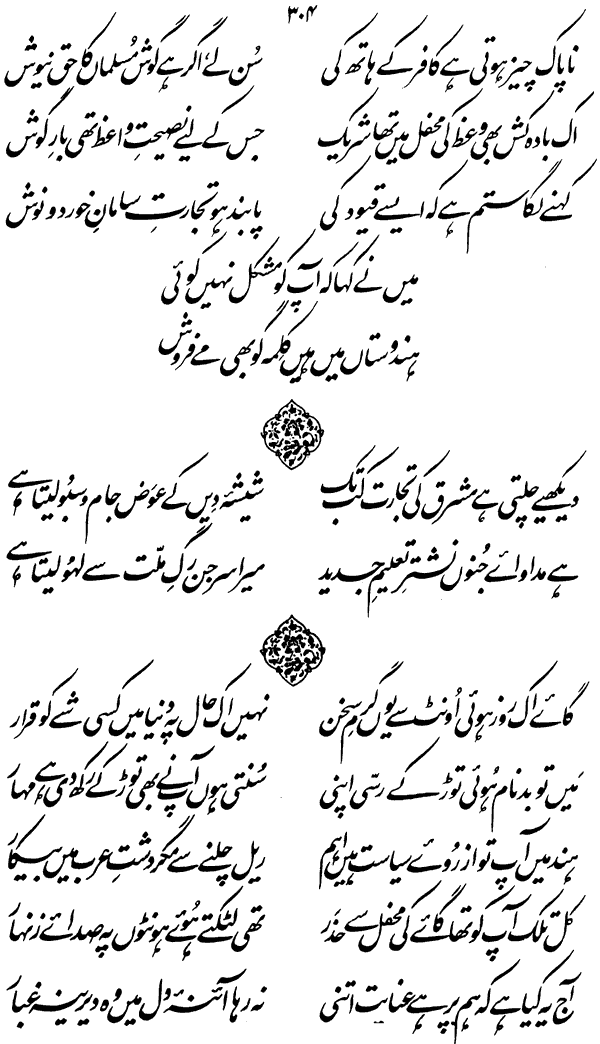 ۳۰۴
ناپاک چیز ہوتی ہے کافر کے ہاتھ کی سُن لے، اگر ہے گوش مُسلماں کا حق نیوش
اک بادہ کش بھی وعظ کی محفل میں تھا شریک جس کے لیے نصیحتِ واعظ تھی بارِ گوش
کہنے لگا ستم ہے کہ ایسے قیود کی پابند ہو تجارتِ سامانِ خورد و نوش
میں نے کہا کہ آپ کو مشکل نہیں کوئی
ہندوستاں میں ہیں کلمہ گو بھی مے فروش
دیکھیے چلتی ہے مشرق کی تجارت کب تک شیشۂ دیں کے عوَض جام و سبُو لیتا ہے
ہے مداوائے جُنونِ نشترِ تعلیمِ جدید میرا سرجن رگِ ملّت سے لہُو لیتا ہے
گائے اک روز ہوئی اُونٹ سے یوں گرمِ سخن نہیں اک حال پہ دُنیا میں کسی شے کو قرار
مَیں تو بد نام ہُوئی توڑ کے رسّی اپنی سُنتی ہوں آپ نے بھی توڑ کے رکھ دی ہے مہار
ہند میں آپ تو از روئے سیاست ہیں اہم ریل چلنے سے مگر دشتِ عرب میں بیکار
کل تلک آپ کو تھا گائے کی محفل سے حذَر تھی لٹکتے ہُوئے ہونٹوں پہ صدائے زنہار
آج یہ کیا ہے کہ ہم پر ہے عنایت اتنی نہ رہا آئنۂ دل میں وہ دیرینہ غبار